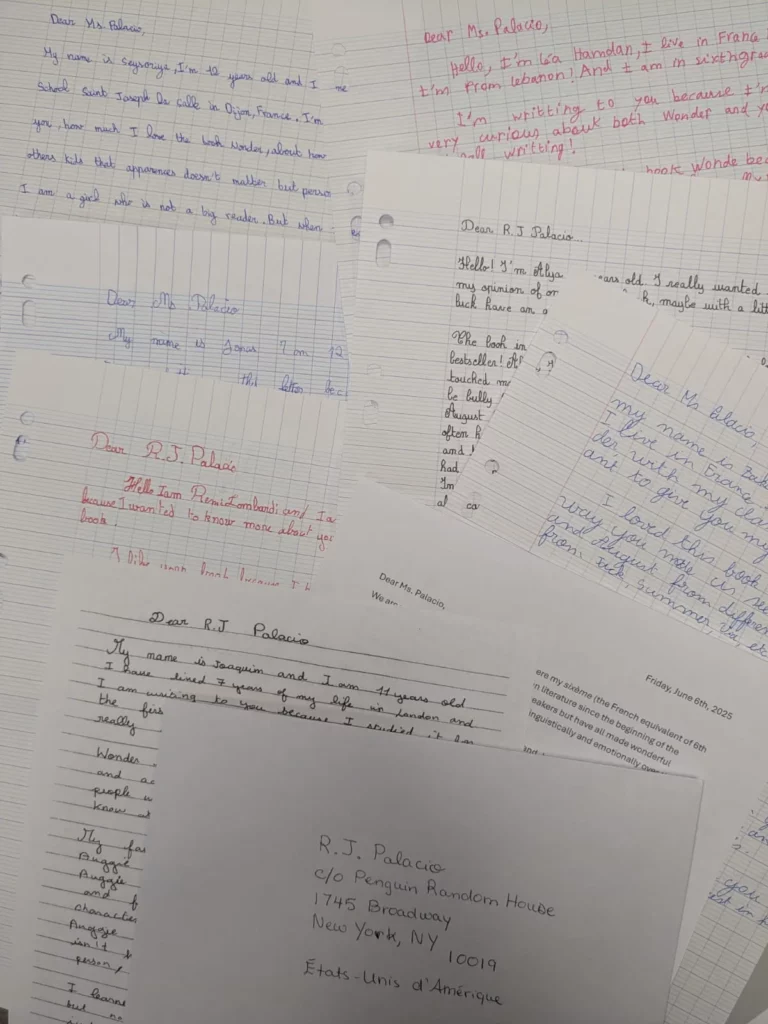 Dear Ms. Palacio,
My name is I'm 12 years old and I
School Saint Joseph La Salle in Dijon, France. I'm
you, how much I love the book Wonder, about how
others kids that apparences doesn't matter but perso
I am a girl who is not a big reader. But when
Dear Ms. Palacio,
Hello, I'm Léa Hamdan, I live in Franc
I'm from Lebanon! And I am in sixthgra
I'm writting to you because I'm
very curious about both Wonder and yo
writting!
book Wonde bec
Dear R.J Palacio...
Hello! I'm Alya ears old. I really wanted
my opinion of h, maybe with a litt
luck have an a
The book in
bestseller! A
touched m
be bully
August
often h
and !
had
Im
al ca
Dear Ms Palacio
My name is Jonas I am 12
this letter bec
Dear Ms Palacio,
my name is Zak
I live in France
der with my cla
ant to give you my
I loved this book
way you made us see
and August from differen
from: Jack, Summer, Via, et
Dear R.J. Palacio
Hello I am Remi Lombardi and I a
because I wanted to know more about yo
book.
Dear Ms. Palacio,
We are
Friday, June 6th, 2025
ere my sixème (the French equivalent of 6th
n literature since the beginning of the
eakers but have all made wonderful
inguistically and emotionally over
Dear R.J Palacio
My name is Joaquim and I am 11 years old
I have lived 7 years of my life in London and
I am writing to you because I studied it
the firs
really
Wonder
and a
people w
know
My fa
Auggie
Auggie
and f
character
Auggie
isn't
person,
I learne
but n
R.J. Palacio
c/o Penguin Random House
1745 Broadway
New York, NY 10019
États-Unis d'Amérique